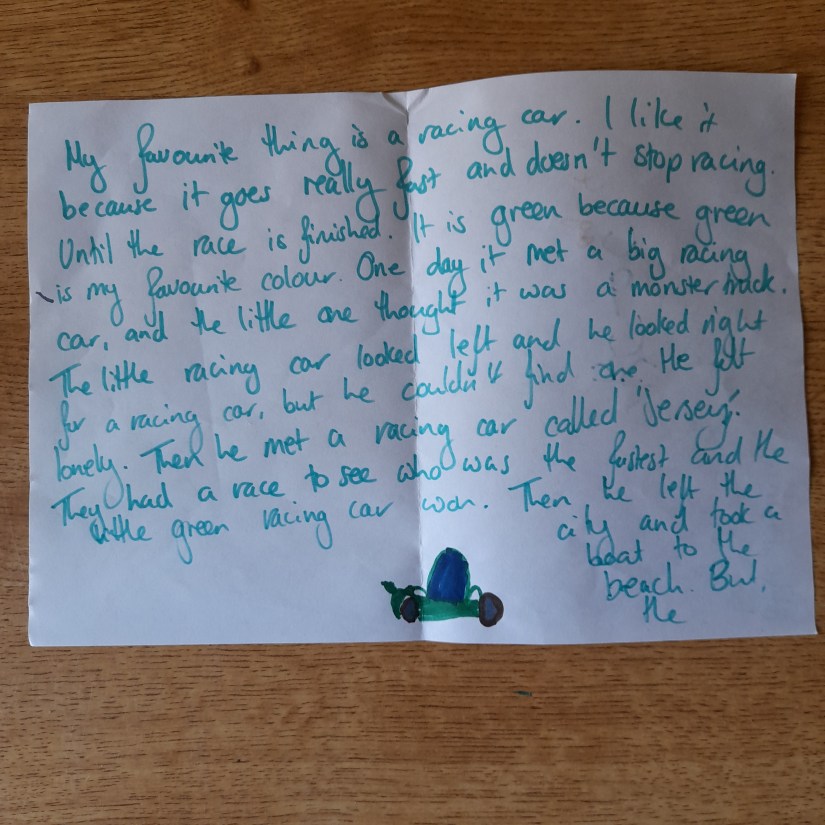 My favourite thing is a racing car. I like it
because it goes really fast and doesn't stop racing.
Until the race is finished. It is green because green
is my favourite colour. One day it met a big racing
car, and the little one thought it was a monster truck.
The little racing car looked left and he looked right
for a racing car, but he couldn't find one. He felt
lonely. Then he met a racing car called 'Jersey'.
They had a race to see who was the fastest and the
little green racing car won. Then he left the
city and took a
boat to the
beach. But,
the